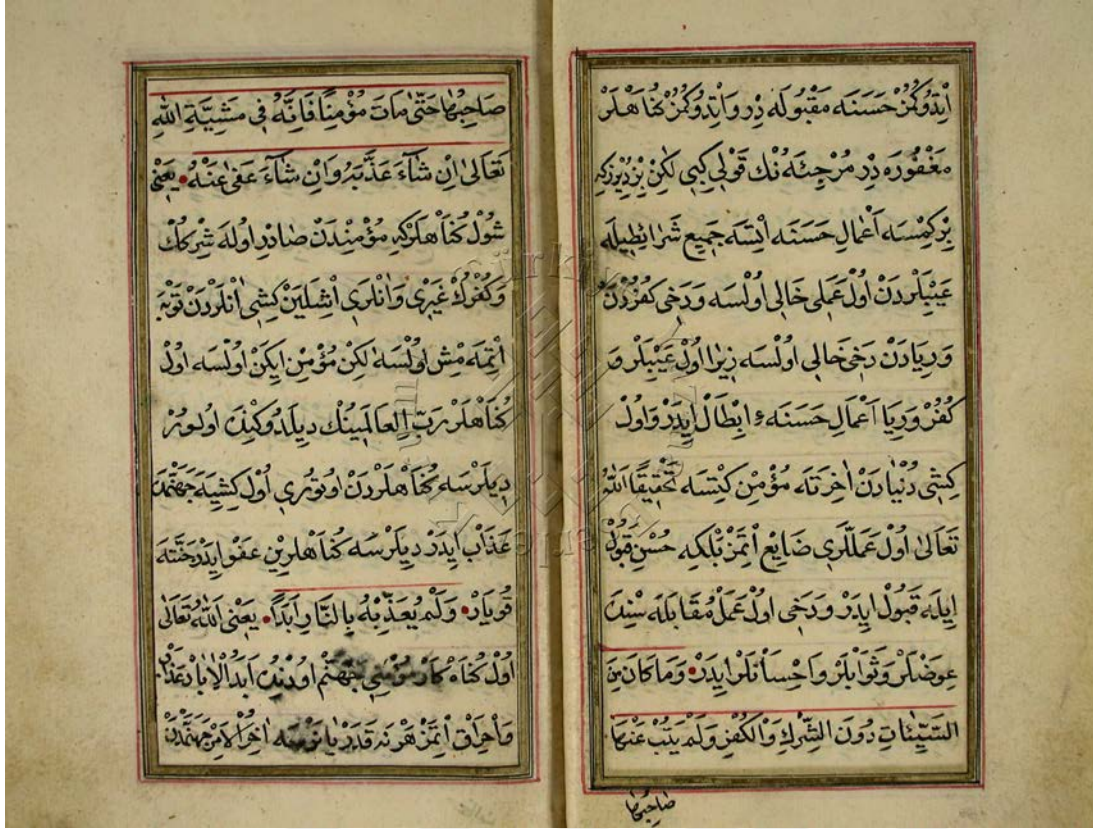 اِيتْدُوكُمُزْ حَسَنَه مَقْبُولَه دِرْ وَاِيتْدُوكُمُزْ كُنَاهْلَرْ
مَغْفُورَه دِرْ مُرْجِئَه نُكْ قَوْلِى كِبِى لٰكِنْ بِزْ دِيْرِزْكِه
بِرْكِمْسَه اَعْمَالِ حَسَنَه اِيتْسَه جَمِيعِ شَرَائِطِيلَه
عَيْبْلَرْدَنْ اُولْ عَمَلِى خَالِى اُولْسَه وَدَخِى كُفُرْدَنْ
وَرِيَادَنْ دَخِى خَالِى اُولْسَه زِيرَا اُولْ عَيْبْلَرْ وَ
كُفُرْ وَرِيَا اَعْمَالِ حَسَنَه ءِ اِبْطَالْ اِيدَرْ وَاُولْ
كِشِى دُنْيَادَنْ اٰخِرَتَه مُؤْمِنْ كِتْسَه تَحْقِيقًا اَللّٰهُ
تَعَالٰى اُولْ عَمَللَرِى ضَايِعْ اِتْمَزْ بَلْكِه حُسْنِ قَبُولْ
اِيلَه قَبُولْ اِيدَرْ وَدَخِى اُولْ عَمَلْ مُقَابَلَه سِنْدَه
عِوَضْلَرْ وَثَوَابْلَرْ وَاِحْسَانْلَرْ اِيدَرْ وَمَا كَانَ مِنَ
السَّيِّئَاتِ دُونَ الشِّرْكِ وَالْكُفْرِ وَلَمْ يَتُبْ عَنْهَا
صَاحِبُهَا
صَاحِبُهَا حَتّٰى مَاتَ مُؤْمِنًا فَاِنَّهُ فِى مَشِيَّةِ اللّٰهِ
تَعَالٰى اِنْ شَآءَ عَذَّبَهُ وَاِنْ شَآءَ عَفٰى عَنْهُ يَعْنِى
شُولْ كُنَاهْلَرْكِه مُؤْمِنْدَنْ صَادِرْ اُولَه شِرْكُكْ
وَكُفْرُكْ غَيْرِى وَاٰنْلَرِى اِشْلَيَنْ كِشِى اٰنْلَرْدَنْ تَوْبَه
اِتْمَه مِشْ اُولْسَه لٰكِنْ مُؤْمِنْ اِيكَنْ اُولْسَه اُولْ
كُنَاهْلَرْ رَبّ الْعَالَمِينُكْ دِيلَدُوكِنْدَه اُولُورْ
دِيلَرْسَه كُنَاهْلَرْدَنْ اُوتُورِى اُولْ كِشِيَه جَهَنَّمْدَه
عَذَابْ اِيدَرْ دِيلَرْسَه كُنَاهْلَرِينْ عَفْو اِيدَرْ جَنَّتَه
قُويَارْ وَلَمْ يُعَذِّبْهُ بِالنَّارِ اَبَدًا يَعْنِى اَللّٰهُ تَعَالٰى
اُولْ كُنَاهْكَارْ مُؤْمِنِى جَهَنَّمْ اُودِنْدَه اَبَدُ الْاٰبَادْ عَذَابْ
وَاِحْرَاقْ اِتْمَزْ هَرْنَه قَدَرْ يَانَرْسَه اٰخِرُ الْاَمْرْ جَهَنَّمْدَنْ